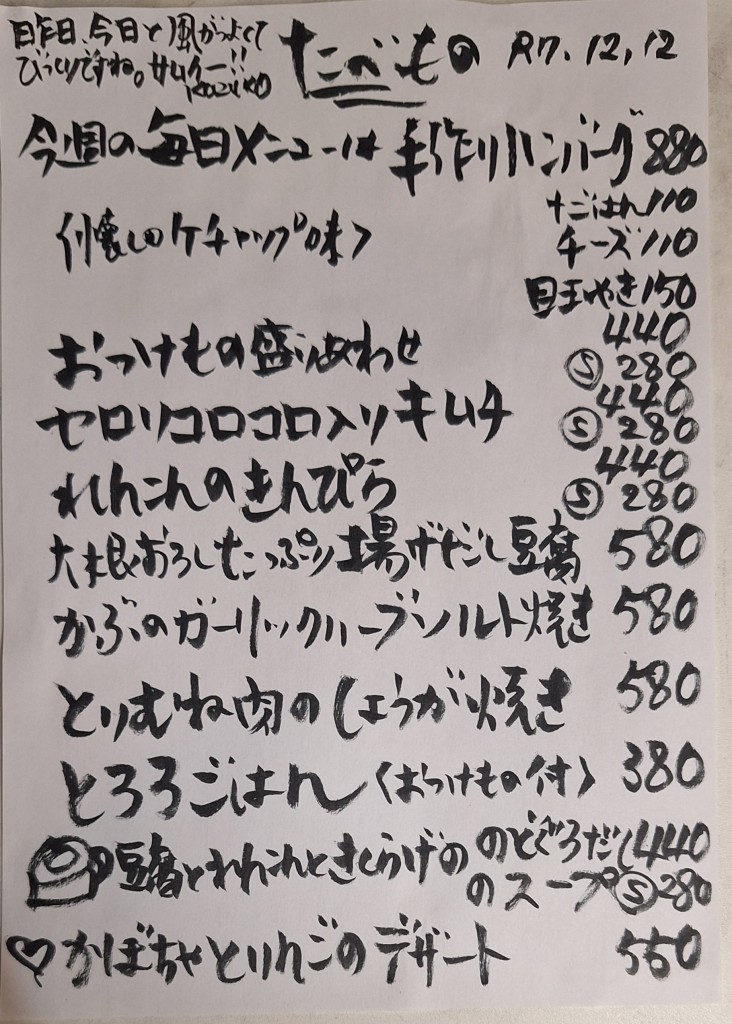 昨日、今日と風がつよくて
びっくりですね。サムケー!!
KAZUKO
たべもの R7.12.12
今週の毎日メニューは 手作りハンバーグ 880
+ごはん 110
〈懐しのケチャップ味〉 チーズ 110
目玉やき 150
おつけもの盛りあわせ 440
Ⓢ 280
セロリコロコロ入りキムチ 440
Ⓢ 280
れんこんのきんぴら 440
Ⓢ 280
大根おろしたっぷり揚げだし豆腐 580
かぶのガーリックハーブソルト焼き 580
とりむね肉のしょうが焼き 580
とろろごはん〈おつけもの付〉 380
豆腐とれんこんときくらげの のどぐろだし 440
のスープ Ⓢ 280
♡かぼちゃとりんごのデザート 550